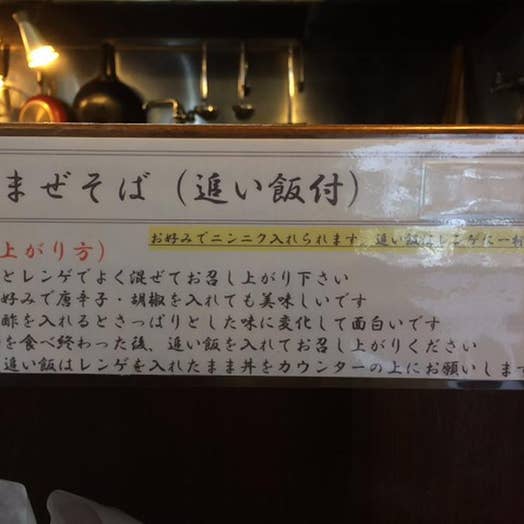 まぜそば（追い飯付）
お好みでニンニク入れられます。追い飯はレンゲに一杯
上がり方）
とレンゲでよく混ぜてお召し上がり下さい
好みで唐辛子・胡椒を入れても美味しいです
酢を入れるとさっぱりとした味に変化して面白いです
を食べ終わった後、追い飯を入れてお召し上がりください
追い飯はレンゲを入れたまま丼をカウンターの上にお願いします